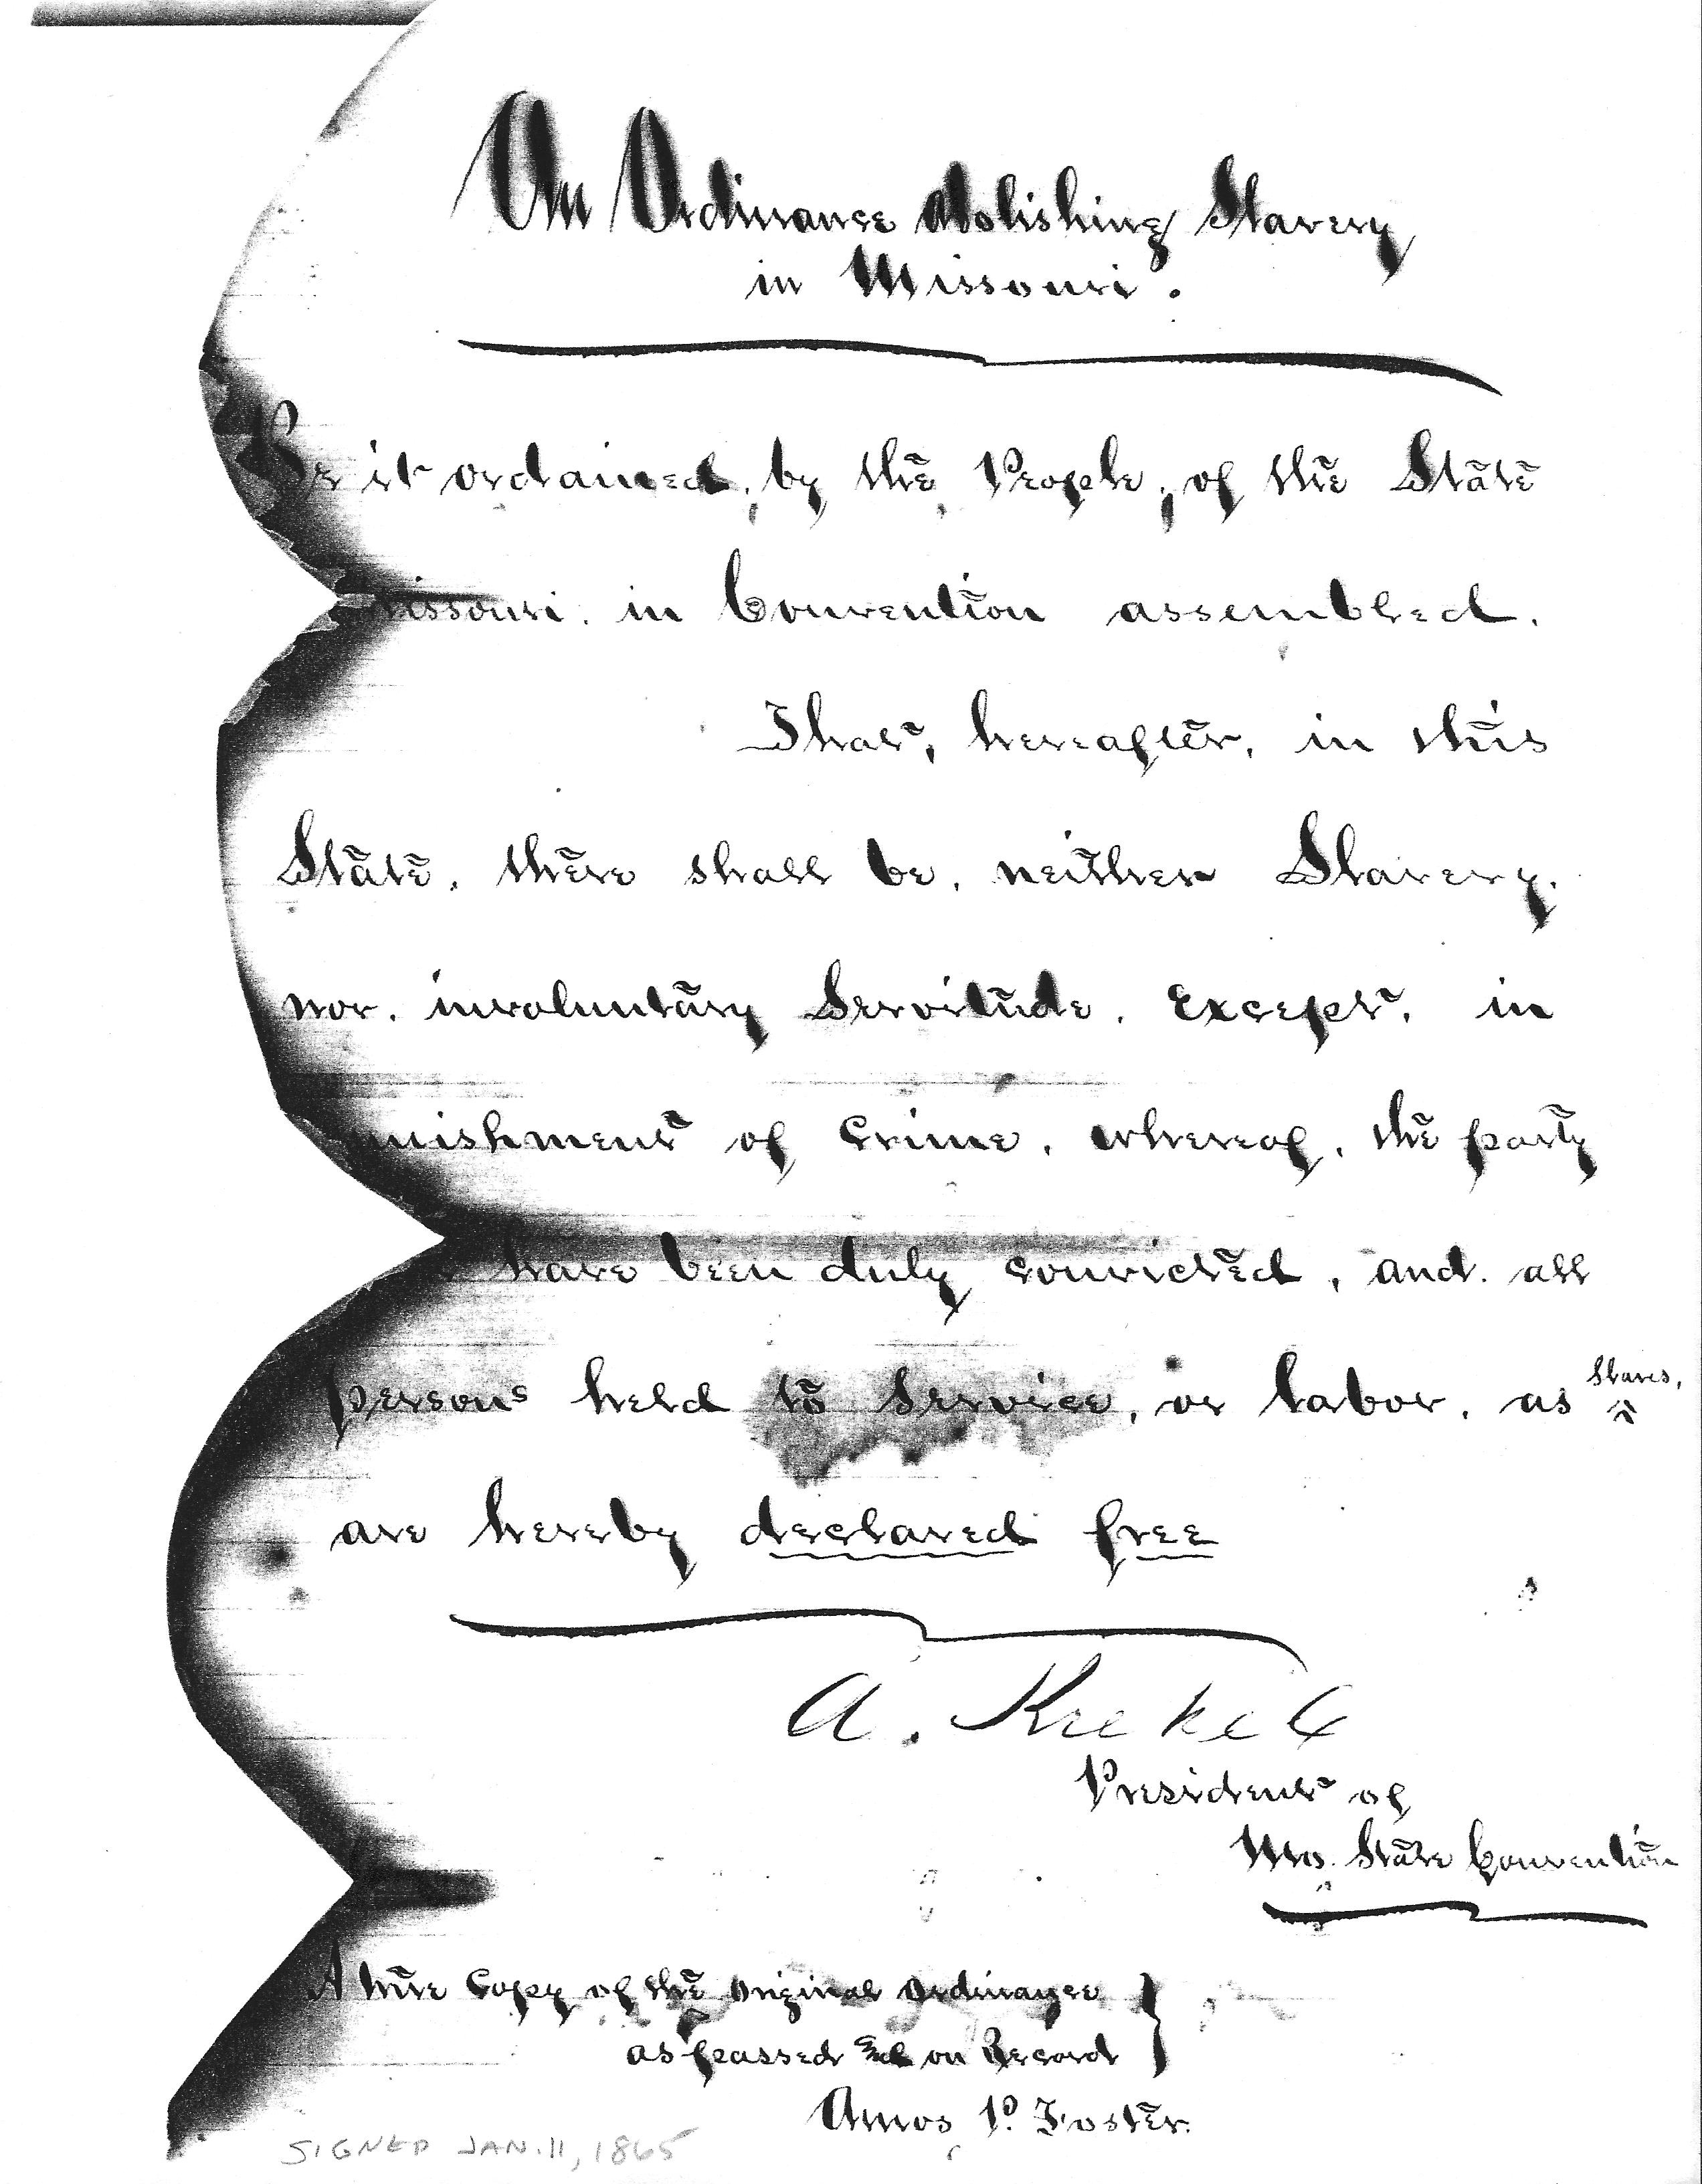 An Ordinance Abolishing Slavery
in Missouri.
Be it ordained, by the People, of the State
Missouri, in Convention assembled.
That, hereafter, in this
State, there shall be, neither Slavery,
nor, involuntary Servitude, Except, in
nishment of Crime, whereof, the party
have been duly convicted, and. all
persons held to Service, or labor, as Slaves,
are hereby declared free
A. Krekel
President of
Mo. State Convention
A true Copy of the Original Ordinance
as passed and on Record
Amos P. Foster.
SIGNED JAN. 11, 1865